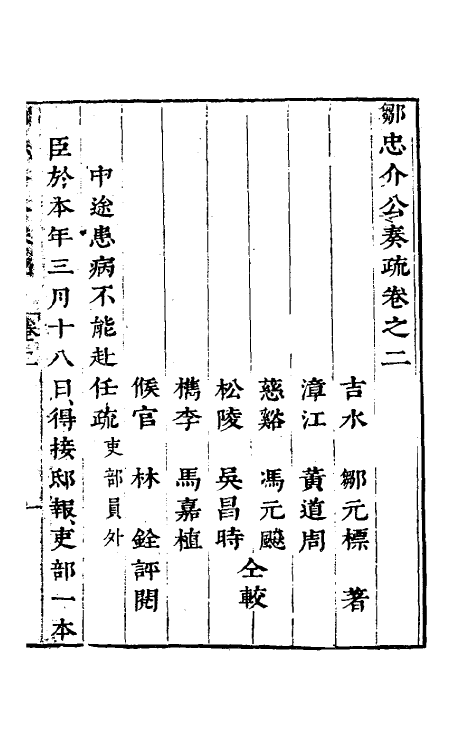 鄒忠介公奏疏卷之二
吉水 鄒元標 著
漳江 黃道周
慈谿 馮元飈
松陵 吳昌時 仝較
檇李 馬嘉植
候官 林 銓評閱
中途患病不能赴任疏吏部員外
臣於本年三月十八日得接邸報吏部一本